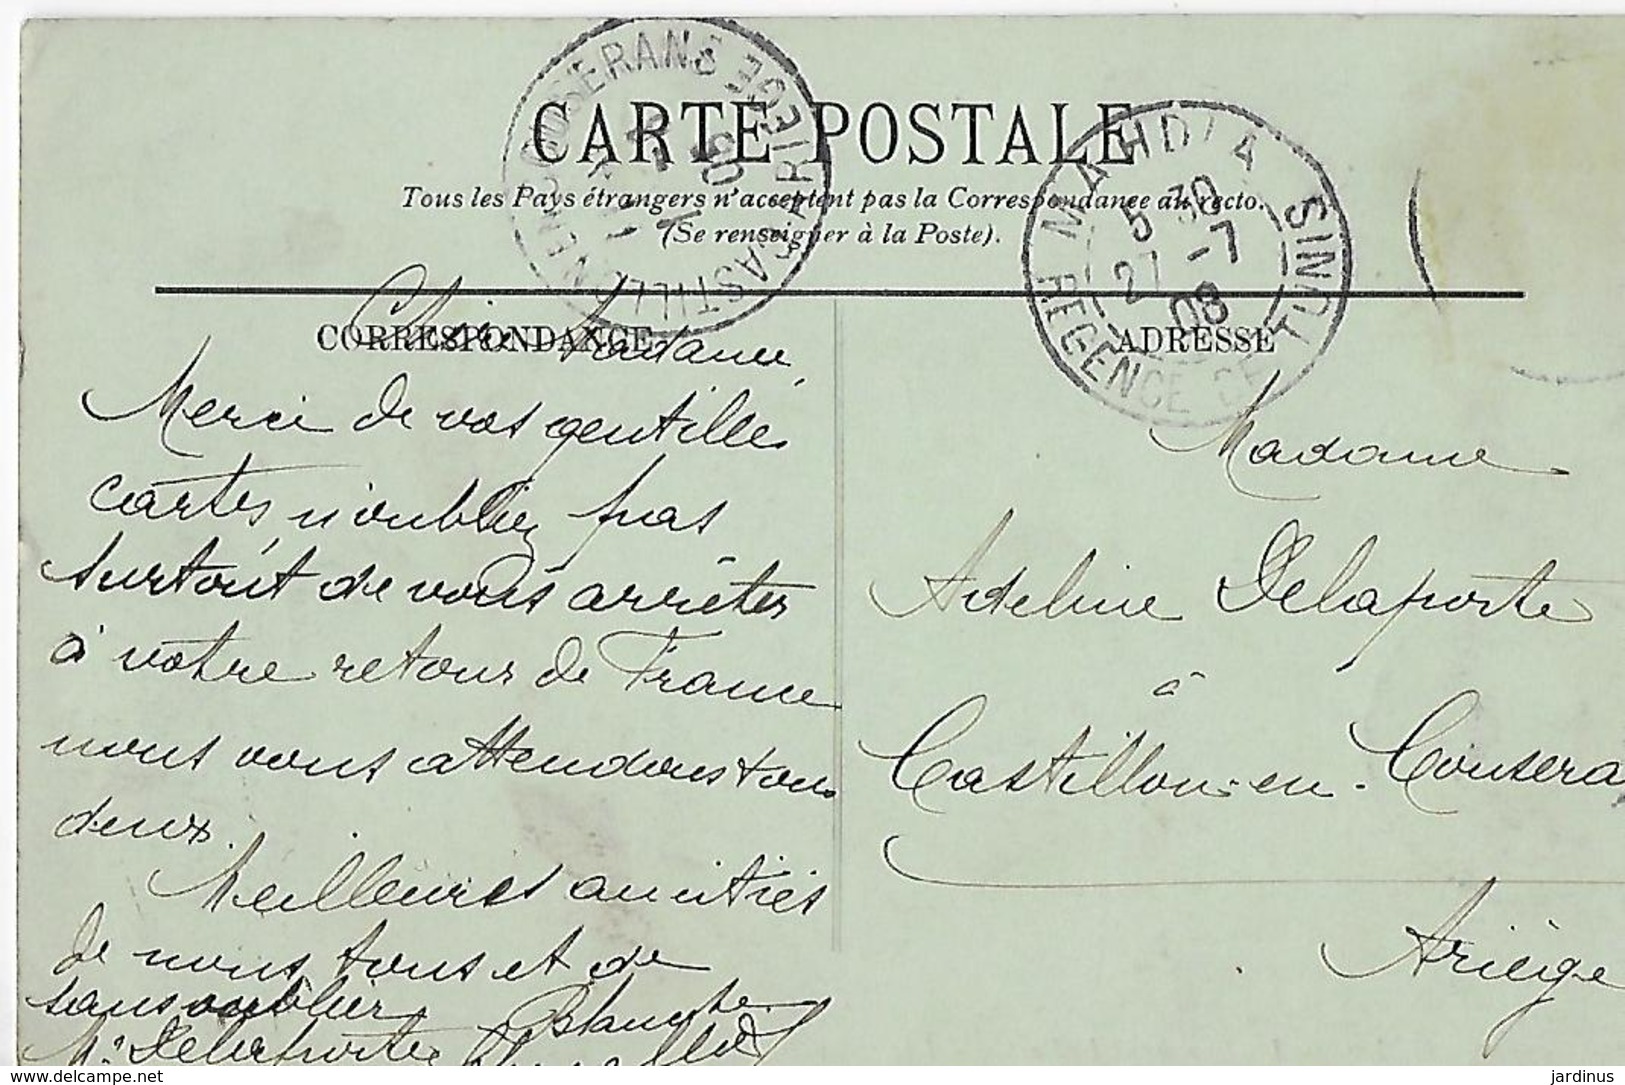 CARTE POSTALE
Tous les Pays étrangers n'acceptent pas la Correspondance au recto.
(Se renseigner à la Poste).
CASTILLON EN COUSERANS ARIEGE
MAHDIA REGENCE DE TUNIS
5 30
27 -7
08
CORRESPONDANCE
ADRESSE
Chère Madame
Merci de vos gentilles
cartes n'oubliez pas
surtout de vous arrêter
à votre retour de France
nous vous attendons tous
deux.
Meilleures amitiés
de nous tous et de
sans oublier Blanche
Mr Delaporte
Madame
Adeline Delaporte
à
Castillon-en-Cousera
Ariège
www.delcampe.net
jardinus